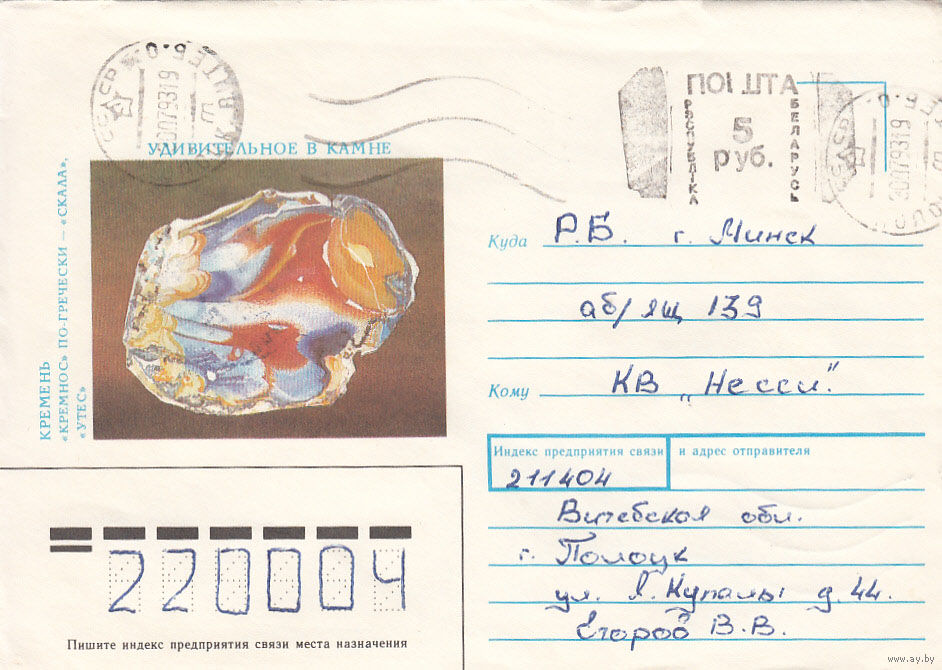 УДИВИТЕЛЬНОЕ В КАМНЕ
КРЕМЕНЬ
«КРЕМНОС» ПО-ГРЕЧЕСКИ — «СКАЛА»,
«УТЕС»
ПОШТА
РЭСПУБЛІКА
5
руб.
БЕЛАРУСЬ
СССР
30079319
СССР
30079319
Куда Р.Б. г. Минск
аб/ящ 139
Кому КВ „Несси"
Индекс предприятия связи и адрес отправителя
211404
Витебская обл.
г. Полоцк
ул. Я. Купалы д. 44.
Егоров В.В.
220004
Пишите индекс предприятия связи места назначения
www.ay.by